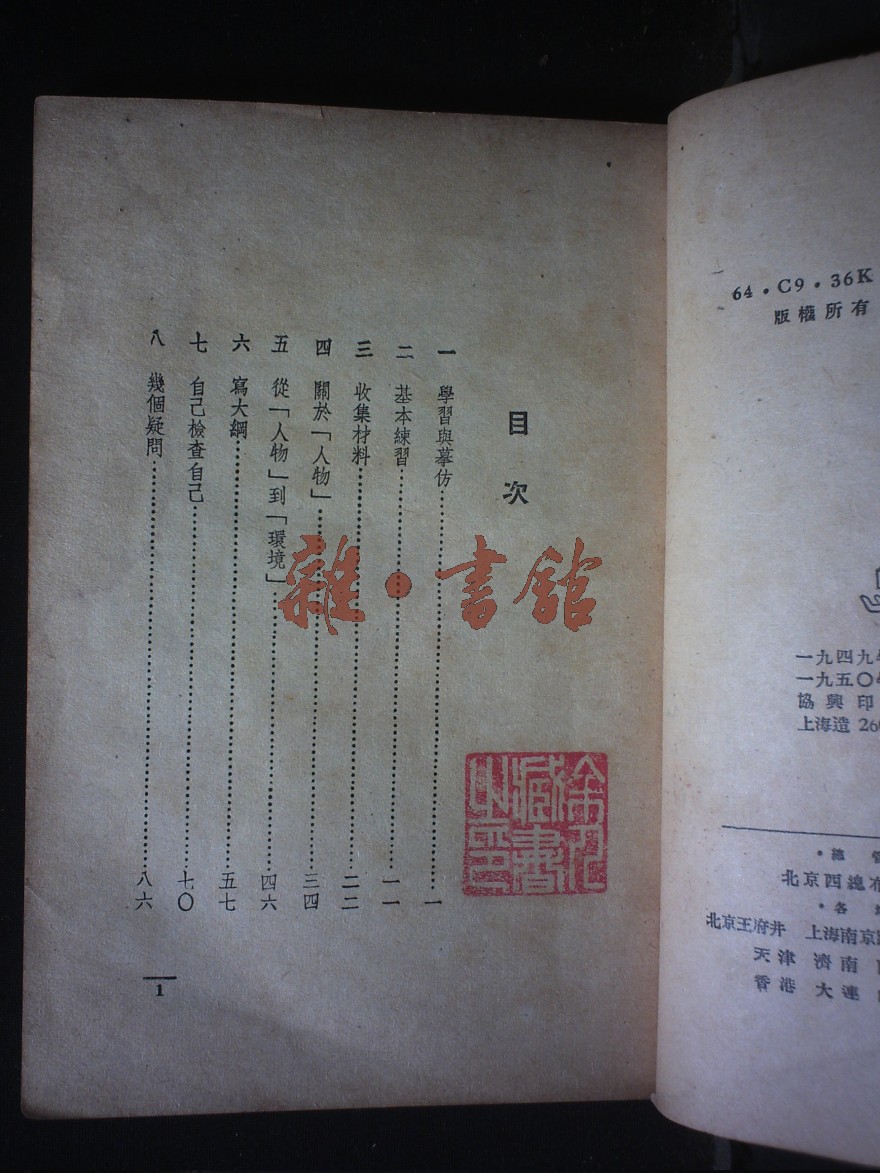 目次
一 學習與摹仿……一
二 基本練習……一一
三 收集材料……二二
四 關於「人物」……三四
五 從「人物」到「環境」……四六
六 寫大綱……五七
七 自己檢查自己……七〇
八 幾個疑問……八六
1
雜·書館
藏書
之印
64·C9·36K
版權所有
一九四九
一九五〇
協興印
上海造 26
·總管
北京西總布
·各
北京王府井 上海南京路
天津 濟南
香港 大連